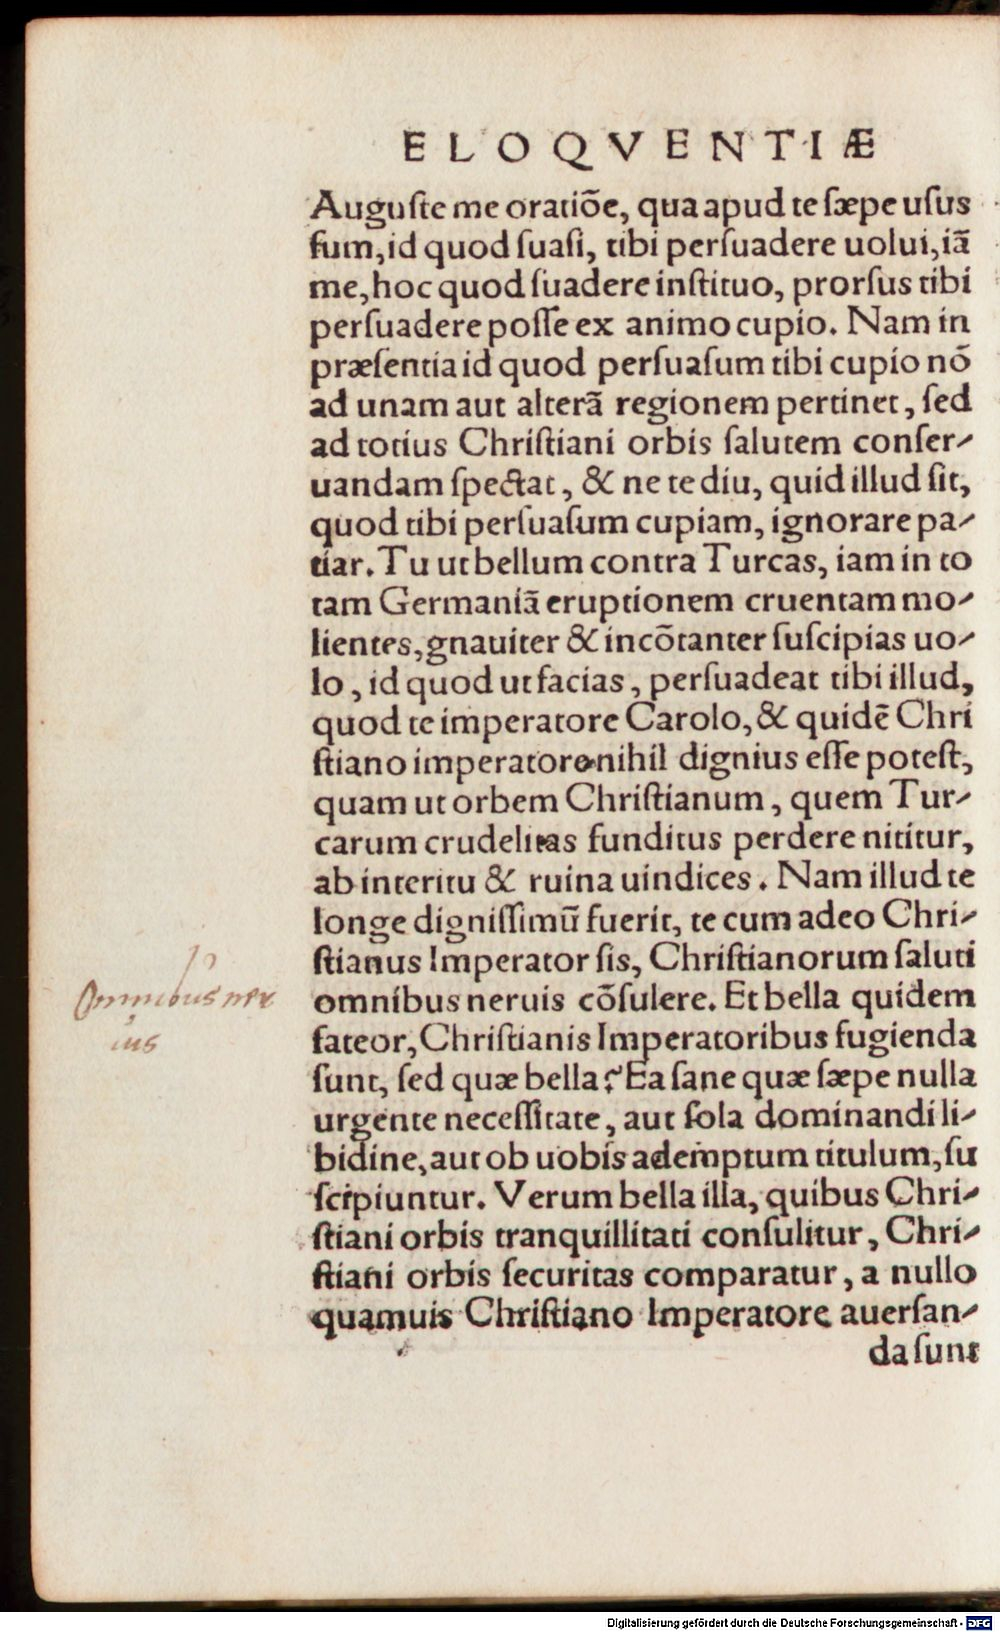 ELOQVENTIÆ
Auguſte me oratiõe, qua apud te ſæpe uſus
ſum, id quod ſuaſi, tibi perſuadere uolui, iã
me, hoc quod ſuadere inſtituo, prorſus tibi
perſuadere poſſe ex animo cupio. Nam in
præſentia id quod perſuaſum tibi cupio nõ
ad unam aut alterã regionem pertinet, ſed
ad totius Chriſtiani orbis ſalutem conſer-
uandam ſpectat, & ne te diu, quid illud ſit,
quod tibi perſuaſum cupiam, ignorare pa-
tiar. Tu ut bellum contra Turcas, iam in to
tam Germaniã eruptionem cruentam mo-
lientes, gnauiter & incõtanter ſuſcipias uo-
lo, id quod ut facias, perſuadeat tibi illud,
quod te imperatore Carolo, & quidẽ Chri
ſtiano imperatore nihil dignius eſſe poteſt,
quam ut orbem Chriſtianum, quem Tur-
carum crudelitas funditus perdere nititur,
ab interitu & ruina uindices. Nam illud te
longe digniſſimũ fuerit, te cum adeo Chri-
ſtianus Imperator ſis, Chriſtianorum ſaluti
omnibus neruis cõſulere. Et bella quidem
fateor, Chriſtianis Imperatoribus fugienda
ſunt, ſed quæ bella? Ea ſane quæ ſæpe nulla
urgente neceſſitate, aut ſola dominandi li-
bidine, aut ob uobis ademptum titulum, ſu
ſcipiuntur. Verum bella illa, quibus Chri-
ſtiani orbis tranquillitati conſulitur, Chri-
ſtiani orbis ſecuritas comparatur, a nullo
quamuis Chriſtiano Imperatore auerſan-
da ſunt
Omnibus ner
uis
Digitalisierung gefördert durch die Deutsche Forschungsgemeinschaft - DFG